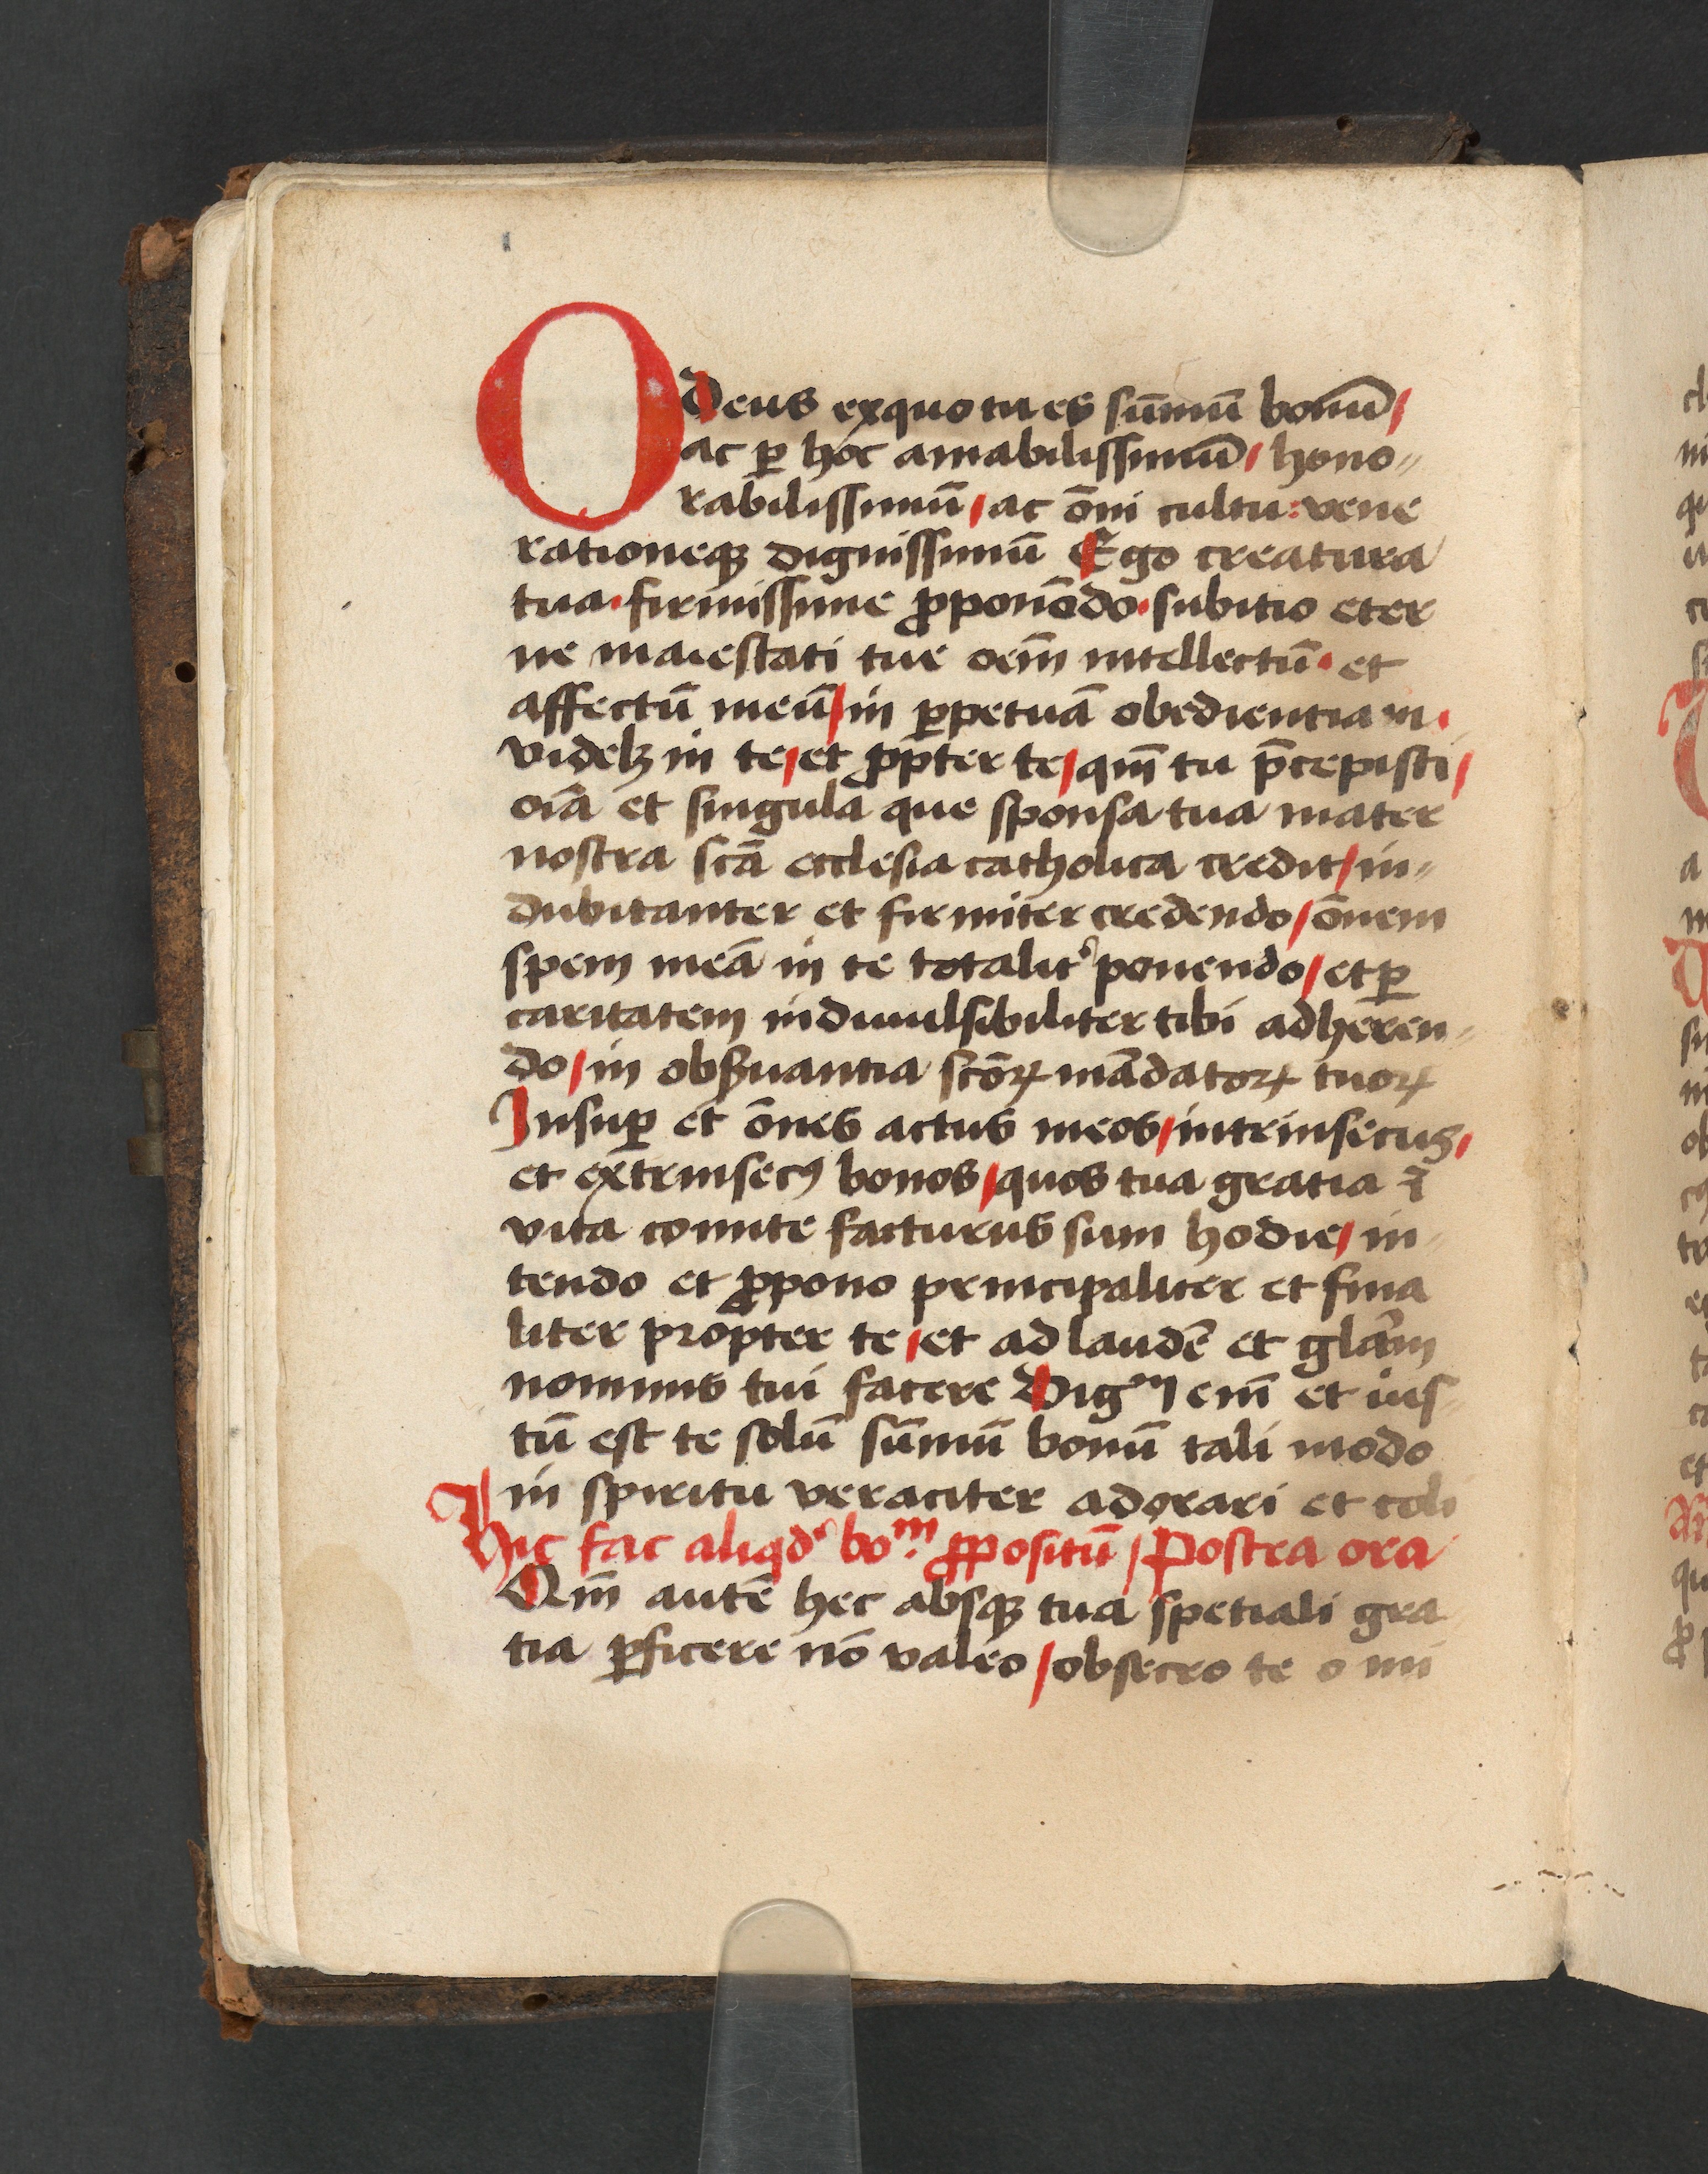 O Deus exquo tu es sum̄mū bonū /
ac ꝑ hoc amabilissimū / hono„
rabilissimū / ac om̄i cultu : vene
rationeqꝫ dignissimū Ego creatura
tua · firmissime ꝓponēdo · subitio eter
ne maiestati tue oem̄ intellectū · et
affectū meū / in ꝑpetuā obedientiam ·
videlꝫ in te / et ꝓpter te / qm̄ tu p̄cepisti /
oīa et singula que sponsa tua mater
nostra scā ecclesia catholica credit / in„
dubitanter et firmiter credendo / om̄em
spem meā in te totalit' ponendo / et ꝑ
caritatem indiuulsibiliter tibi adheren„
do / in obẜuantia scōꝝ mādatoꝝ tuoꝝ
Insuꝑ et om̄es actus meos / intrinsecus /
et extrinsecꝰ bonos / quos tua gratia ī
vita comite facturus sum hodie / in
tendo et ꝓpono principaliter et fina
liter propter te / et ad laudē et glām
nominis tui facere Digᵐ em̄ et ius„
tū est te solū sum̄mū bonū tali modo
in spiritu veraciter adorari et coli
Hic fac aliqd' boᵐ ꝓpositū / Postea ora
Qm̄ autē hec absqꝫ tua spetiali gra
tia ꝑficere nō valeo / obsecro te o mi